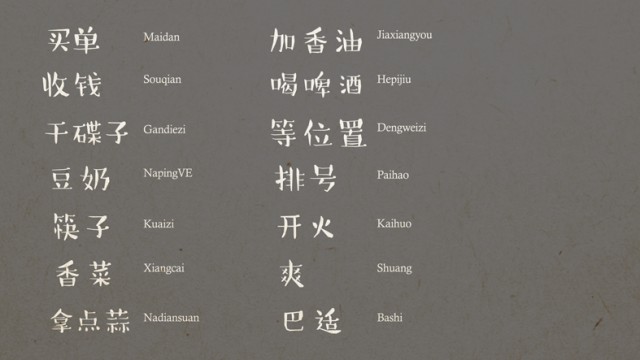 买单 Maidan
收钱 Souqian
干碟子 Gandiezi
豆奶 NapingVE
筷子 Kuaizi
香菜 Xiangcai
拿点蒜 Nadiansuan
加香油 Jiaxiangyou
喝啤酒 Hepijiu
等位置 Dengweizi
排号 Paihao
开火 Kaihuo
爽 Shuang
巴适 Bashi